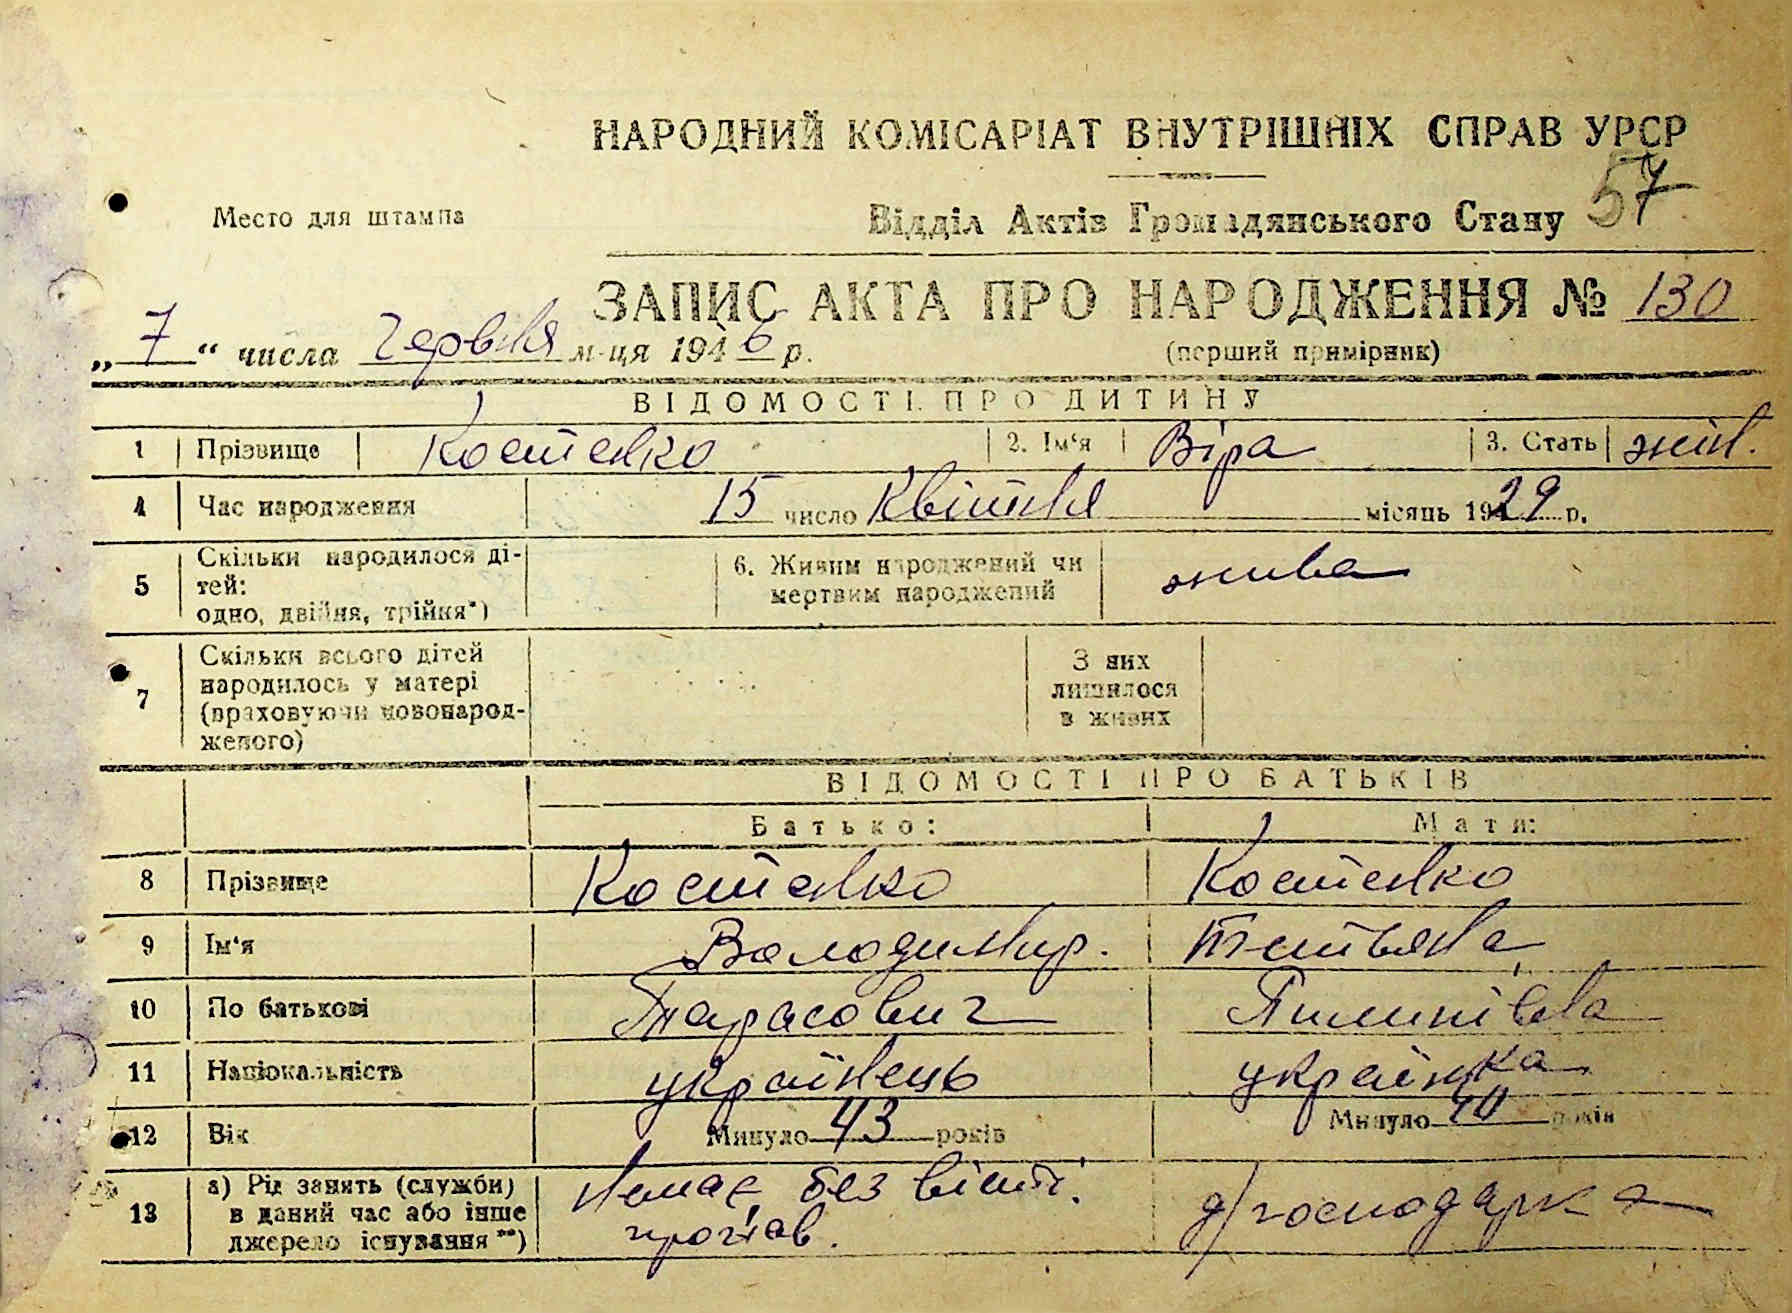 НАРОДНИЙ КОМІСАРІАТ ВНУТРІШНІХ СПРАВ УРСР
57
Место для штампа
Відділ Актів Громадянського Стану
ЗАПИС АКТА ПРО НАРОДЖЕННЯ № 130
„ 7 “ числа Червня м-ця 1946 р.
(перший примірник)
ВІДОМОСТІ ПРО ДИТИНУ
1 Прізвище Костенко 2. Ім'я Віра 3. Стать жін.
4 Час народження 15 число Квітня місяць 1929 р.
5 Скільки народилося ді-
тей:
одно, двійня, трійня*)
6. Живим народжений чи
мертвим народжений
жива
7 Скільки всього дітей
народилось у матері
(враховуючи новонарод-
женого)
З них
лишилося
в живих
ВІДОМОСТІ ПРО БАТЬКІВ
Батько: Мати:
8 Прізвище Костенко Костенко
9 Ім'я Володимир. Татьяна
10 По батькові Тарасович Пилипівна
11 Національність українець українка
12 Вік Минуло 43 років Минуло 40 років
13 а) Рід занять (служби)
в даний час або інше
джерело існування**)
Немає, без вісті
пропав.
д/господарка